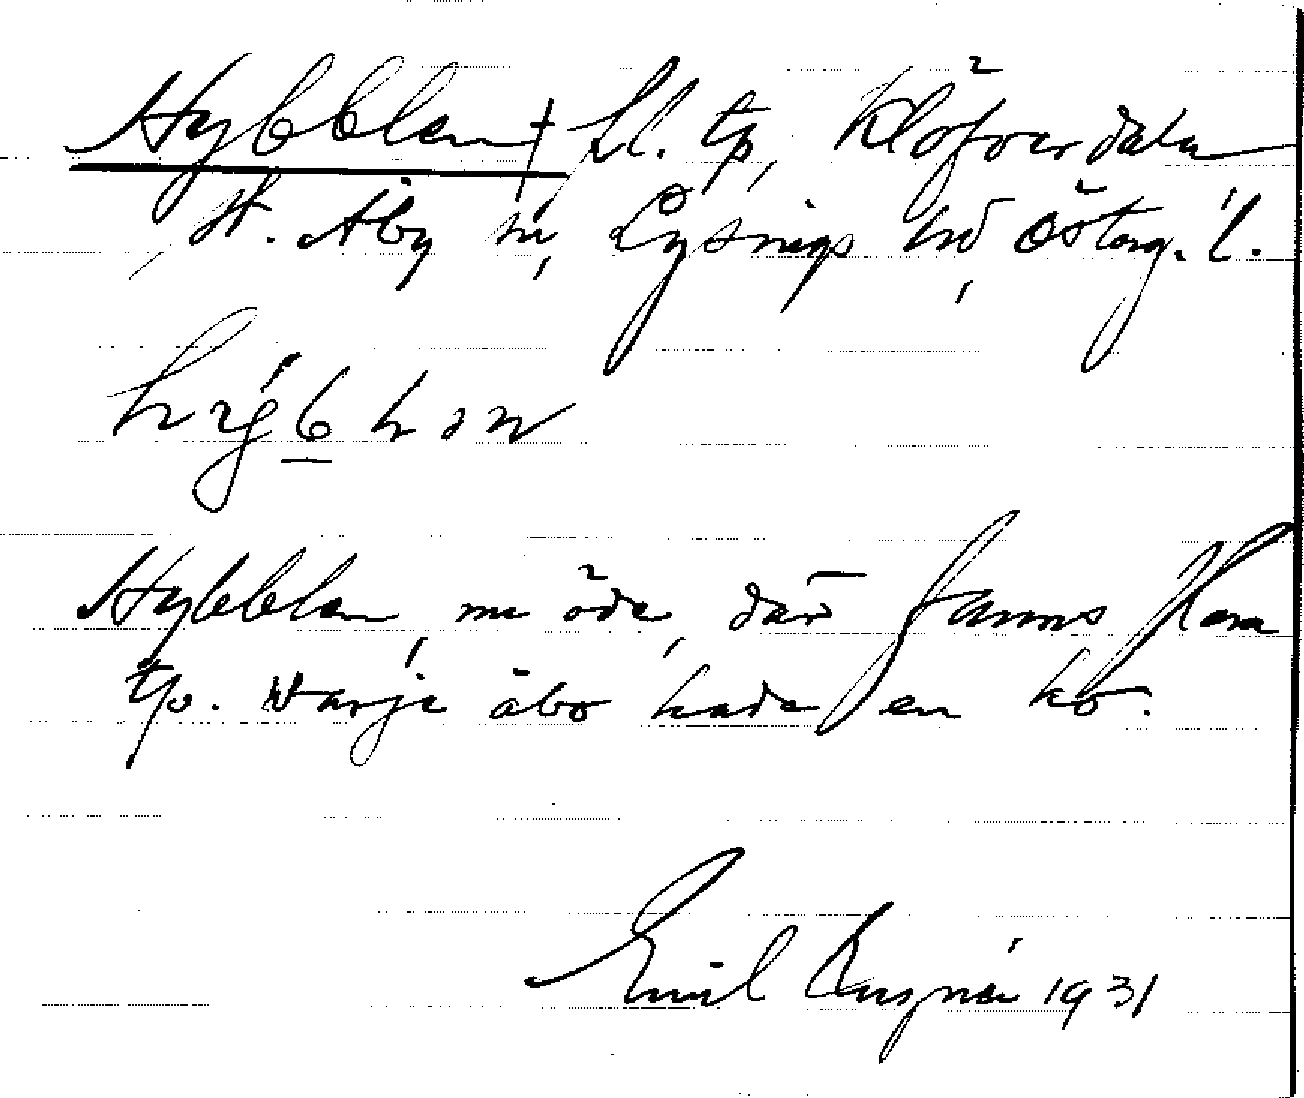 Hybblen † f.l. tp, Klöfverdala
St. Åby sn, Lysings hd, Österg. l.

Hybblen, nu öde, där fanns flera
tp. Varje åbo hade en ko.
Emil 1931